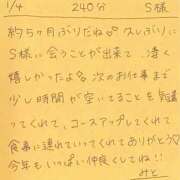 1/4 240分 S様
約5ヶ月ぶりだね 久しぶりに
S様に会うことが出来て、凄く
嬉しかったよ 次のお仕事まで
少し時間が空いてることを気遣
ってくれて、コースアップしてくれて
食事に連れていってくれてありがとう♡
今年もいっぱい仲良くしてね!!
みと